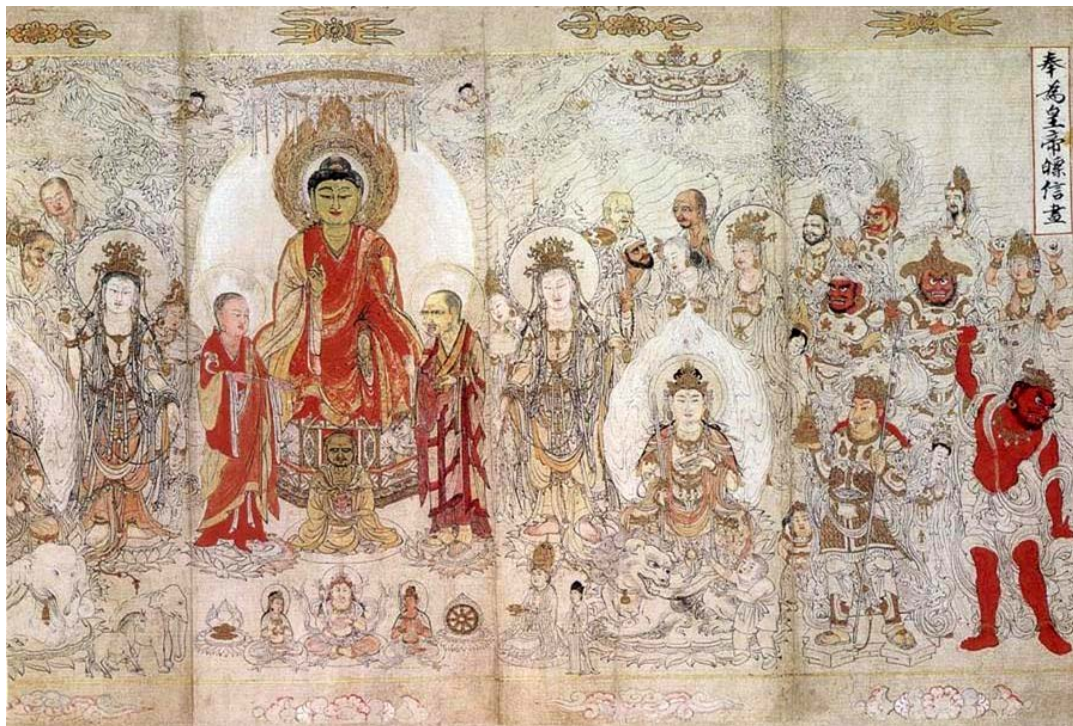 奉為皇帝瞟信畫